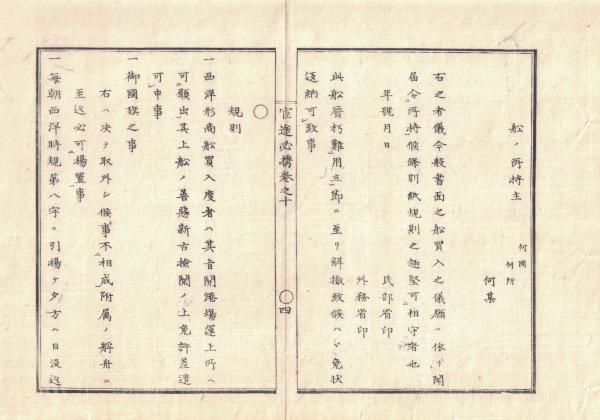 船ノ所持主
何國
何所
何某
右之者儀今般書面之船買入之儀願ニ依リ聞
届令所持候條別紙規則之趣堅可相守者也
年號月日
民部省印
外務省印
此船廢朽難用立節ニ至リ解撤致候ハヽ免狀
返納可致事
官途必携卷之十
〇四
〇
規則
一西洋形商船買入度者ハ其旨開港場運上所ヘ
可願出其上船ノ善惡新古檢閲ノ上免許差遣
可申事
一御國旗之事
右ハ決テ取外シ候事不相成附屬ノ艀舟ニ
至迄必可揚置事
一每朝西洋時規第八字ニ引揚ケ夕方ハ日没迄